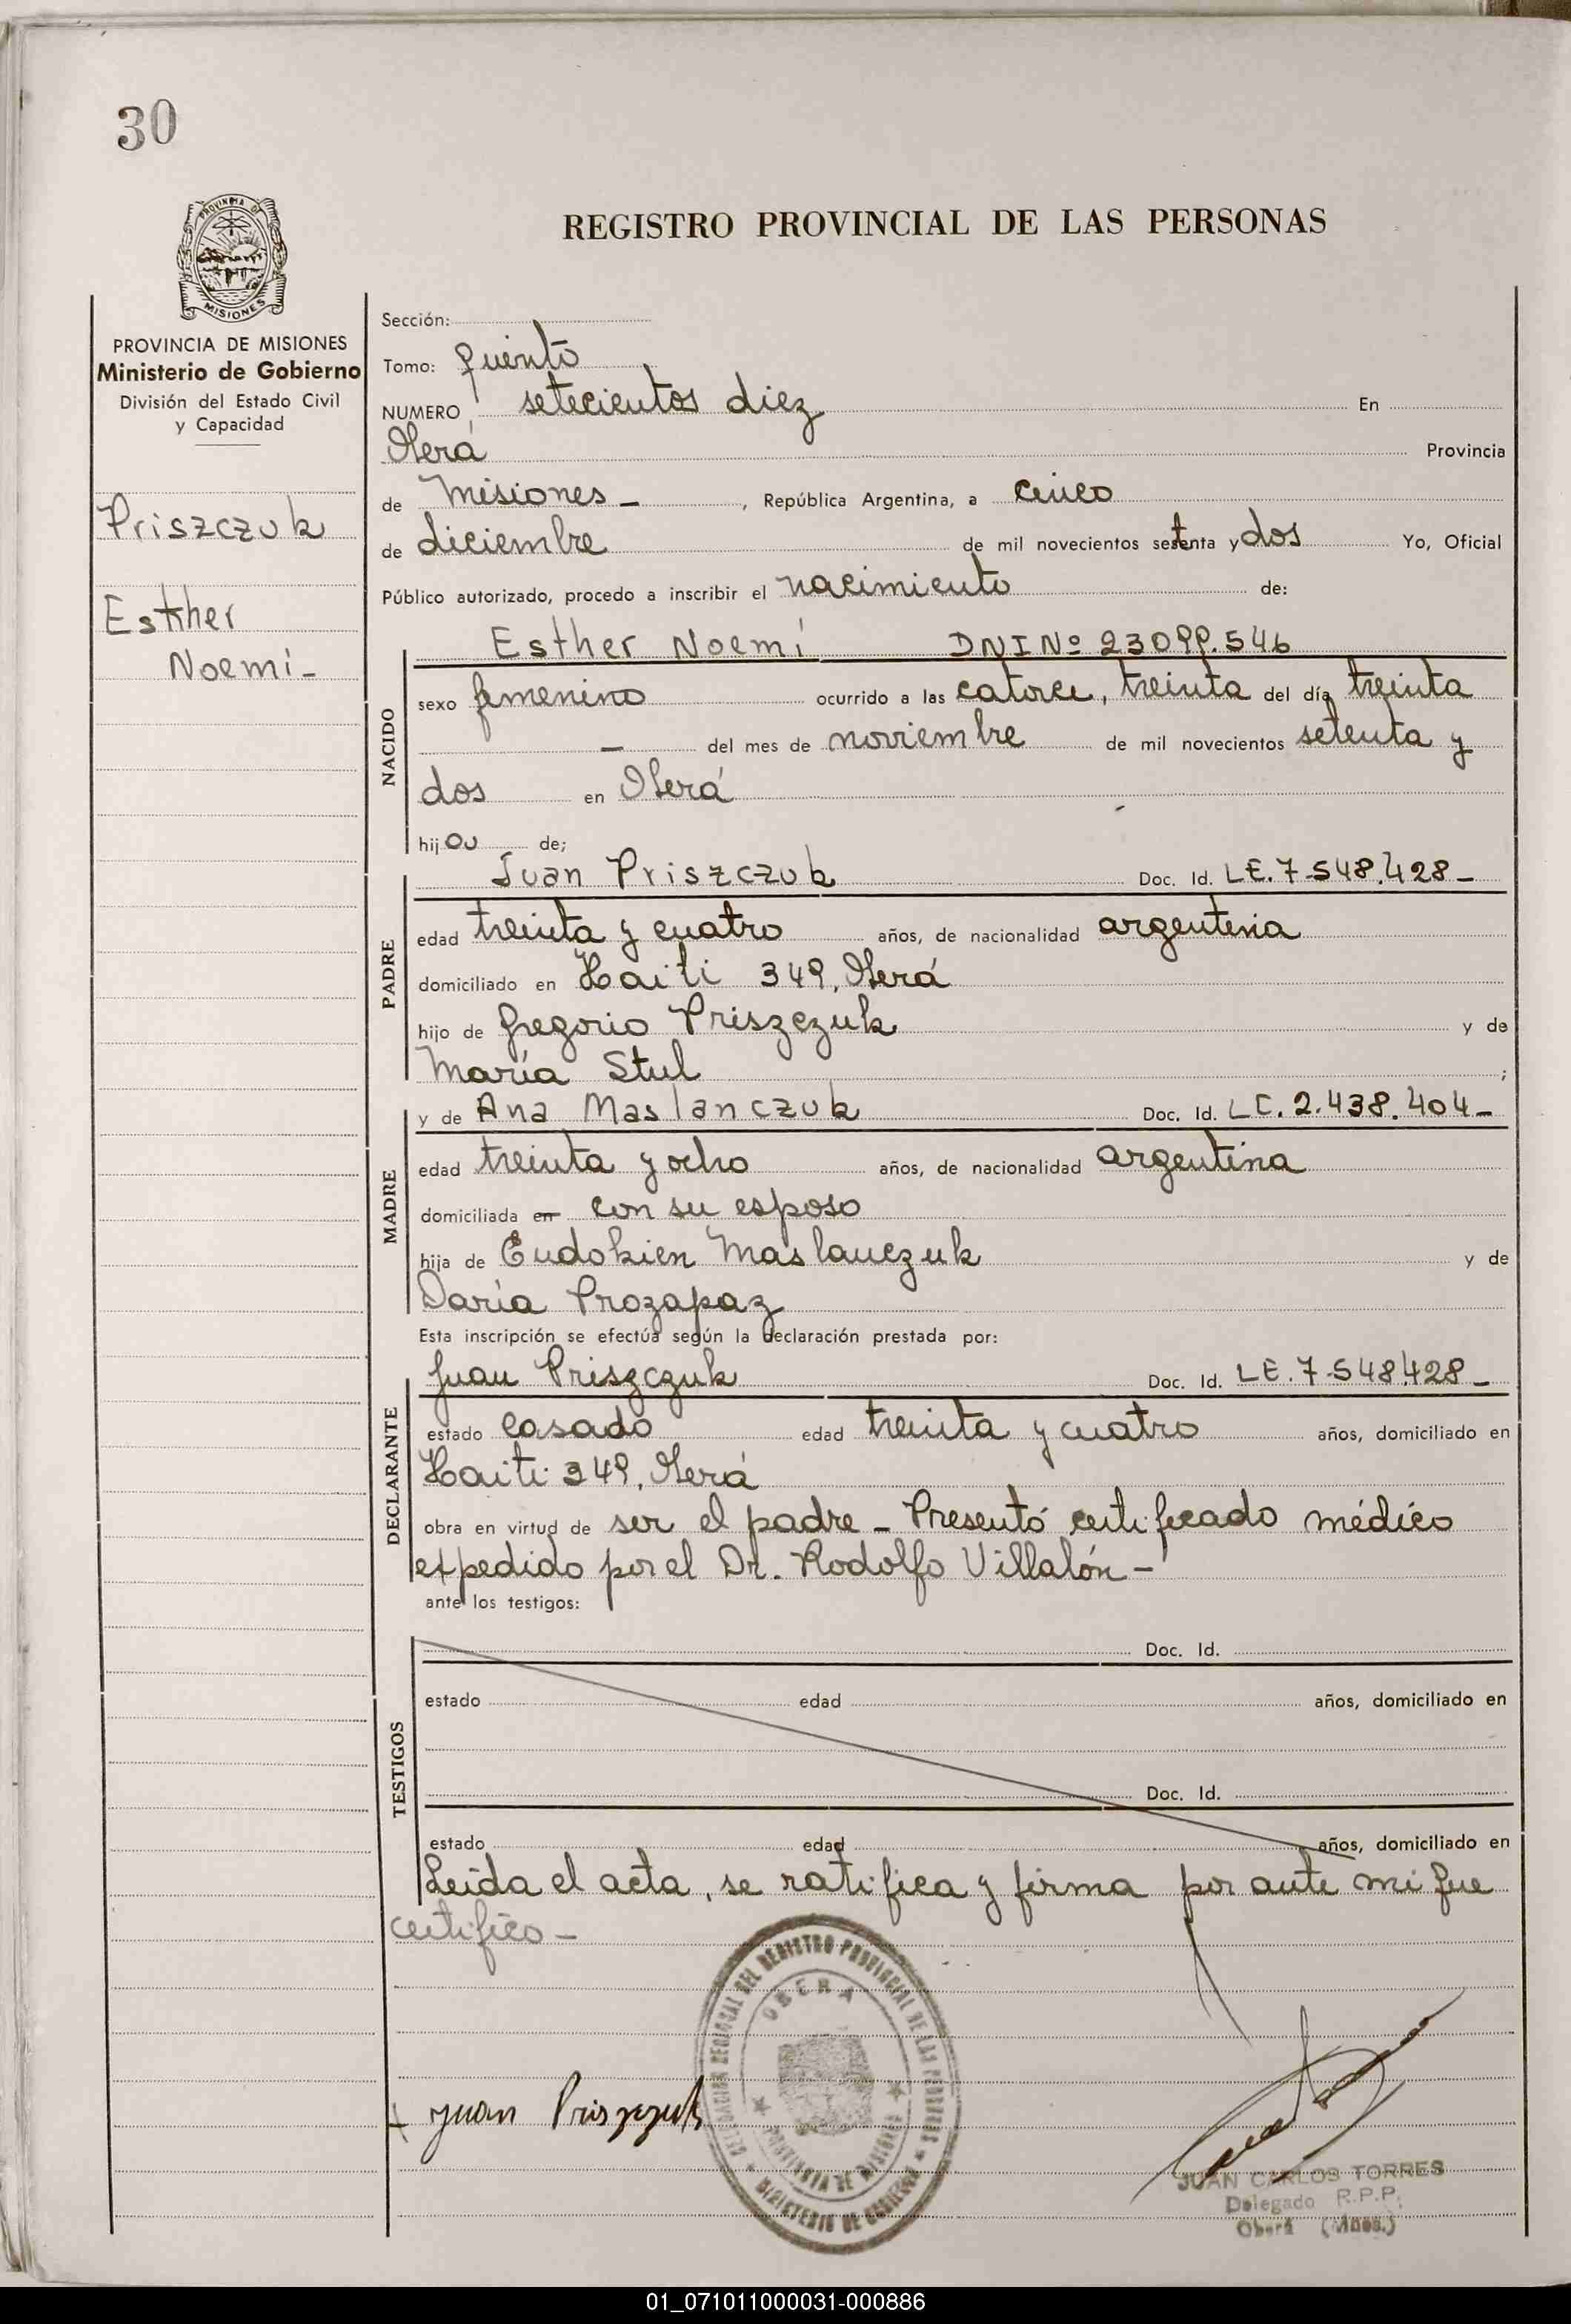 30
PROVINCIA DE
MISIONES
REGISTRO PROVINCIAL DE LAS PERSONAS
PROVINCIA DE MISIONES
Ministerio de Gobierno
División del Estado Civil
y Capacidad
Priszczuk
Esther
Noemi-
Sección:
Tomo: quinto
NUMERO setecientos diez En
Oberá Provincia
de Misiones - , República Argentina, a cinco
de diciembre de mil novecientos setenta y dos Yo, Oficial
Público autorizado, procedo a inscribir el nacimiento de:
NACIDO
Esther Noemí DNI Nº 23099.546
sexo femenino ocurrido a las catorce, treinta del día treinta
- del mes de noviembre de mil novecientos setenta y
dos en Oberá
hija de;
PADRE
Juan Priszczuk Doc. Id. LE. 7.548.428-
edad treinta y cuatro años, de nacionalidad argentina
domiciliado en Haiti 349, Oberá
hijo de Gregorio Priszczuk y de
María Stul ;
MADRE
y de Ana Maslanczuk Doc. Id. LC. 2.438.404-
edad treinta y ocho años, de nacionalidad argentina
domiciliada en con su esposo
hija de Eudokien Maslanczuk y de
Daría Prozapaz
Esta inscripción se efectúa según la declaración prestada por:
DECLARANTE
Juan Priszczuk Doc. Id. LE. 7.548.428-
estado casado edad treinta y cuatro años, domiciliado en
Haiti 349, Oberá
obra en virtud de ser el padre - Presentó certificado médico
expedido por el Dr. Rodolfo Villalón -
ante los testigos:
TESTIGOS
Doc. Id.
estado edad años, domiciliado en
Doc. Id.
estado edad años, domiciliado en
Leida el acta, se ratifica y firma por ante mi fue
certifico -
DELEGACION SECCIONAL DEL REGISTRO PROVINCIAL DE LAS PERSONAS
OBERA
PROVINCIA DE MISIONES
MINISTERIO DE GOBIERNO
Juan Priszczuk
JUAN CARLOS TORRES
Delegado R.P.P.
Oberá (Mnes.)
01_071011000031-000886